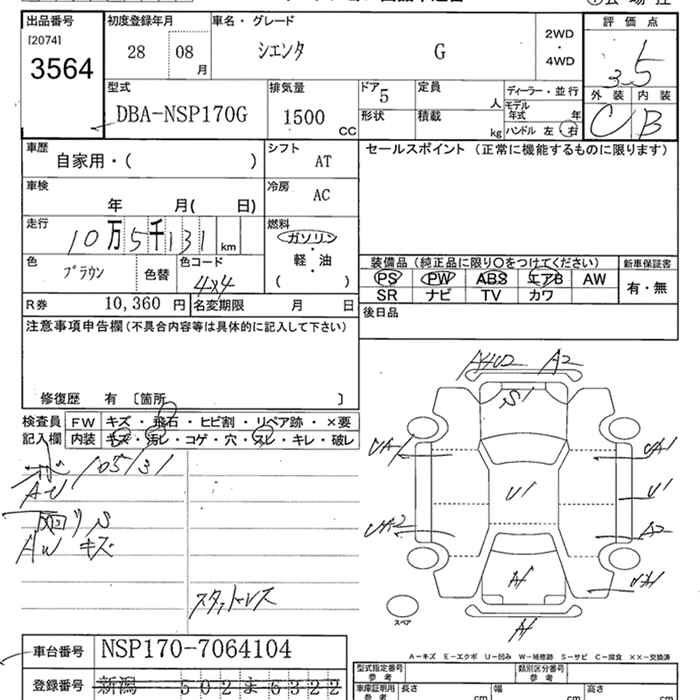 出品番号 初度登録年月 車名・グレード 評価点
[2074] 3564
28 08月 シエンタ G 2WD・4WD 3.5
型式 排気量 ドア 定員 ディーラー・並行 外装 内装
DBA-NSP170G 1500 CC 5 人 モデル年式 年 C B
形状 積載 kg ハンドル 左 右
車歴 シフト セールスポイント (正常に機能するものに限ります)
自家用・( ) AT
車検 冷房
年 月( 日) AC
走行 燃料
10万5千131 km ガソリン・軽・油・( )
色 色コード 装備品 (純正品に限り〇をつけてください) 新車保証書
ブラウン 色替 4X4 PS PW ABS エアB AW 有・無
R券 10,360 円 名変期限 月 日 SR ナビ TV カワ
注意事項申告欄(不具合内容等は具体的に記入して下さい) 後日品
修復歴 有 [箇所 ]
検査員 FW キズ・飛石・ヒビ割・リペア跡・×要
記入欄 内装 キズ・汚レ・コゲ・穴・スレ・キレ・破レ
105131
AW キズ
スタットレス
A2
S1
U1
U1
A2
A1
スペア
A-キズ E-エクボ U-凹み W-補修跡 S-サビ C-腐食 XX-交換済
車台番号 NSP170-7064104
型式指定番号 参考 類別区分番号 参考
登録番号 新潟 502 ま 6322
車庫証明用 参考 長さ cm 幅 cm 高さ cm